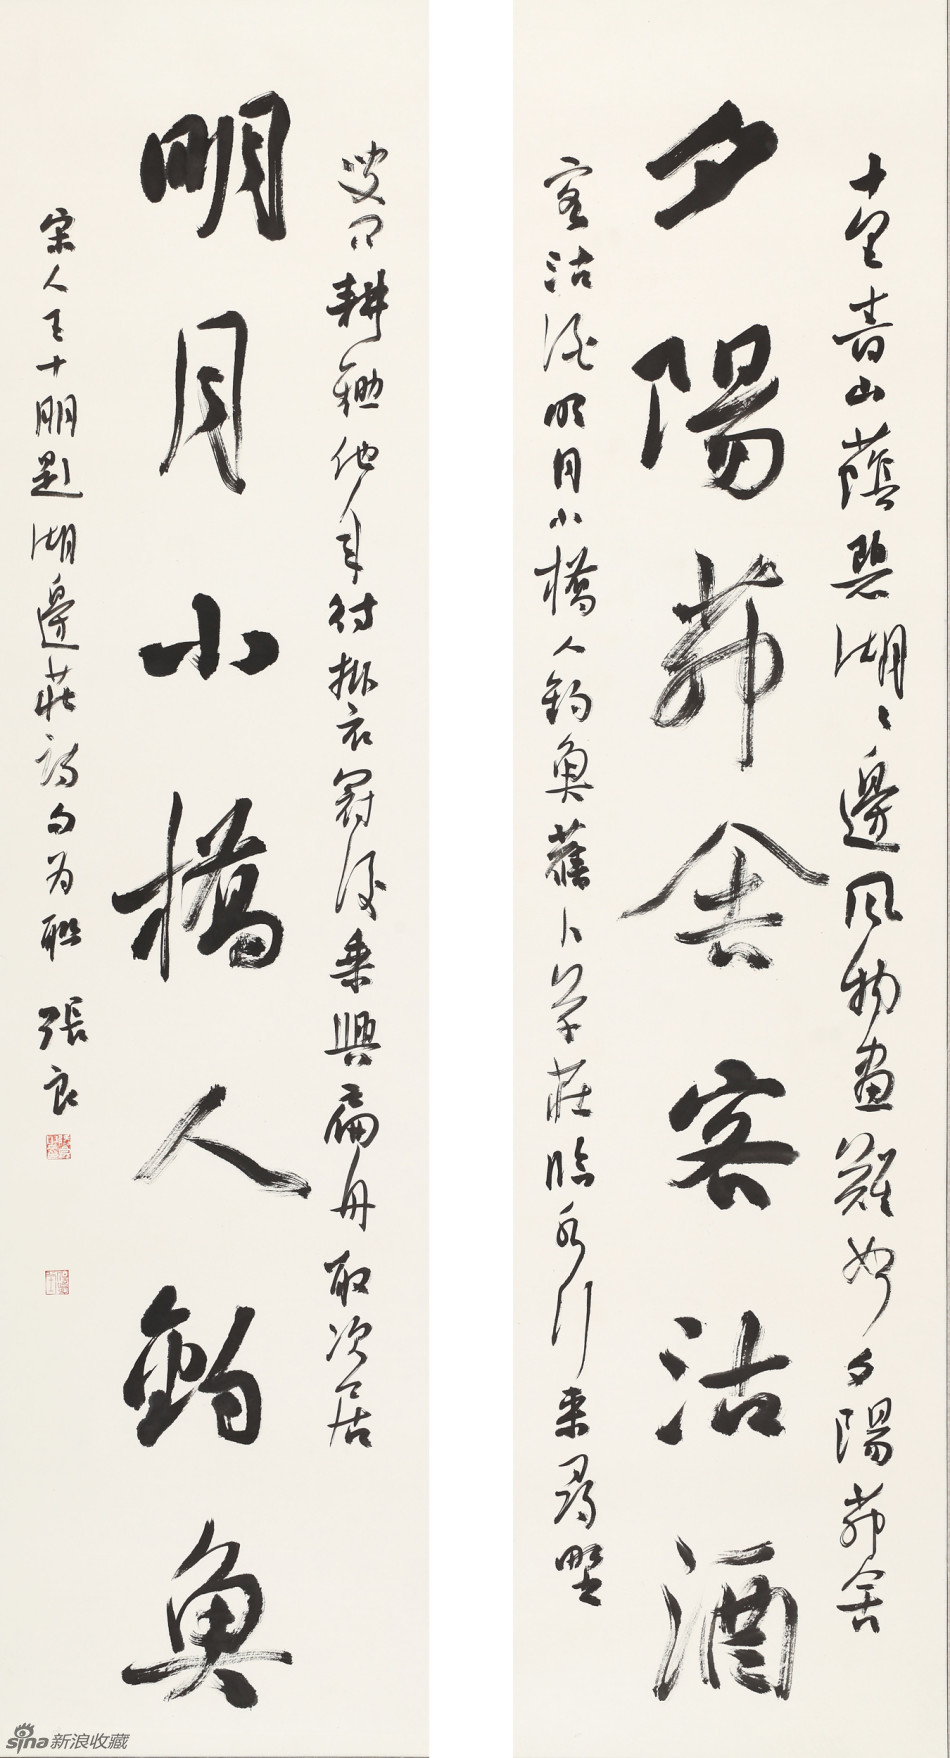 十里青山蔭碧湖〻邊風物畫難如夕陽茆舍
夕陽茆舍客沽酒
客沽酒明月小橋人釣魚舊卜草莊臨水行來尋野
叟問耕鋤他年待掛衣冠後乘興扁舟取次居
明月小橋人釣魚
宋人王十朋題湖邊莊詩句為聯 張良
sina新浪收藏